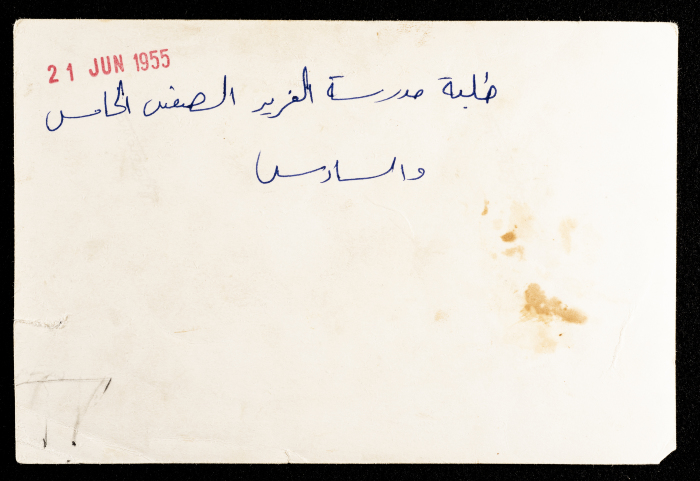 21 JUN 1955
طلبة مدرسة الفرير الصفين الخامس
والسادس